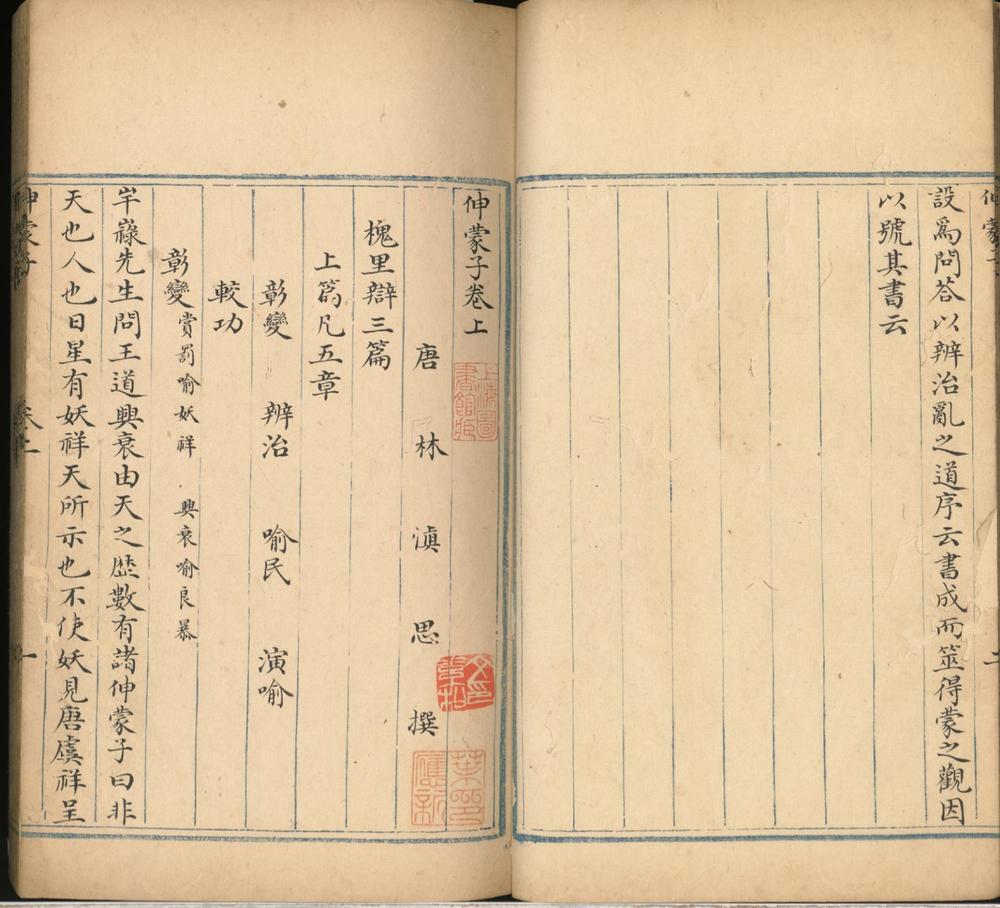 設爲問荅以辨治亂之道序云書成而筮得蒙之觀因
以號其書云
伸蒙子卷上
上海圖書館藏
唐 林 滇 思 撰
槐里辯三篇
上篇凡五章
彰變 辨治 喻民 演喻
較功
彰變賞罰喻妖祥 興衰喻良暴
宇嵺先生問王道興衰由天之歷數有諸伸蒙子曰非
天也人也日星有妖祥天所示也不使妖見唐虞祥呈
伸蒙子
卷上
一